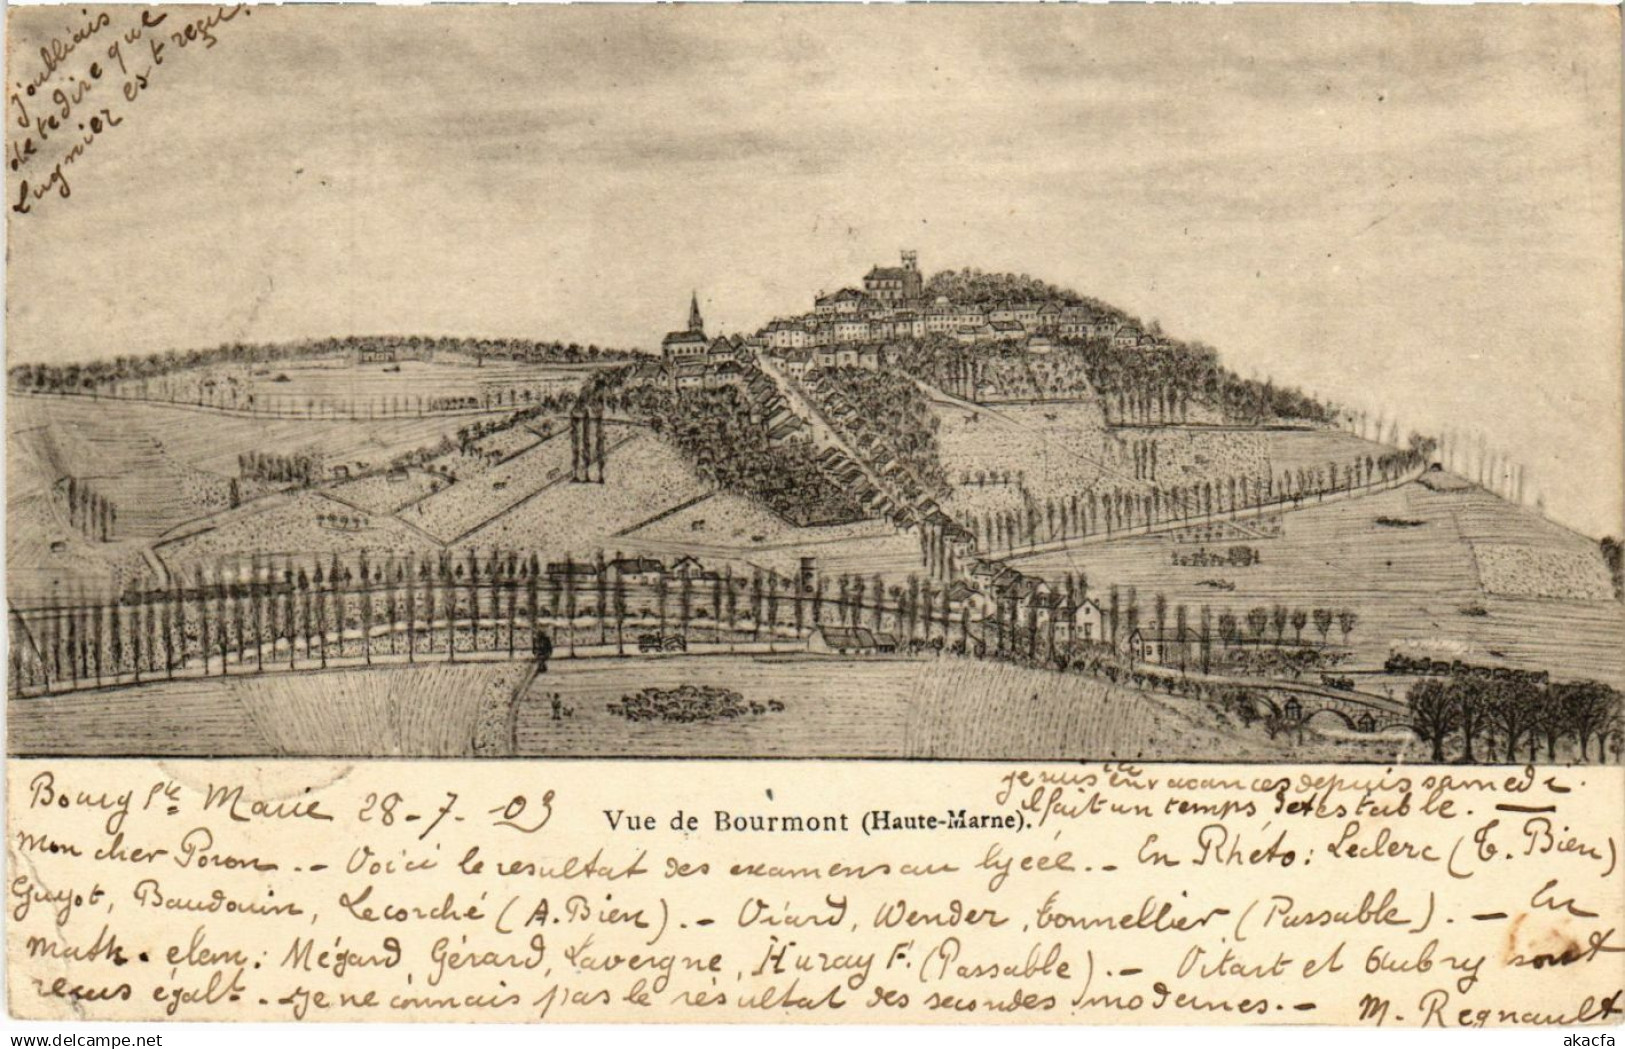 j'oubliais
de te dire que
Lugnier est reçu.
Bourg Ste Marie 28-7-03
Vue de Bourmont (Haute-Marne).
je suis ici en vacances depuis samedi.
Il fait un temps détestable. —
Mon cher Poron. - Voici le resultat des examens au lycée. - En Rhéto: Leclerc (T. Bien)
Guyot, Baudouin, Lecorché (A. Bien). - Viard, Wender, Tonnellier (Passable). - En
math. elem: Mégard, Gérard, Lavergne, Huray F. (Passable). - Vitart et Aubry sont
reçus égalt. - Je ne connais pas le résultat des secondes modernes. -
M. Regnault
akacfa